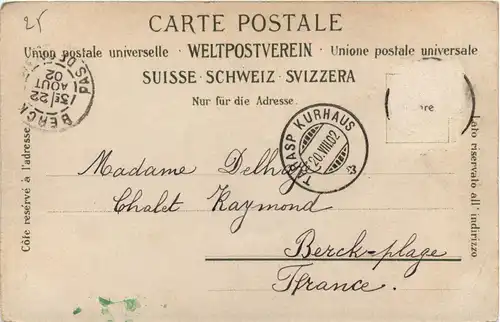 25
CARTE POSTALE
Union postale universelle · WELTPOSTVEREIN · Unione postale universale
SUISSE · SCHWEIZ · SVIZZERA
Nur für die Adresse.
BERCK PAS-DE
13E/22
AOUT
02
TARASP KURHAUS
20.VIII.02
Côte réservé à l'adresse.
Lato riservato all' indirizzo
Madame
Chalet Raymond
Berck-plage
France.